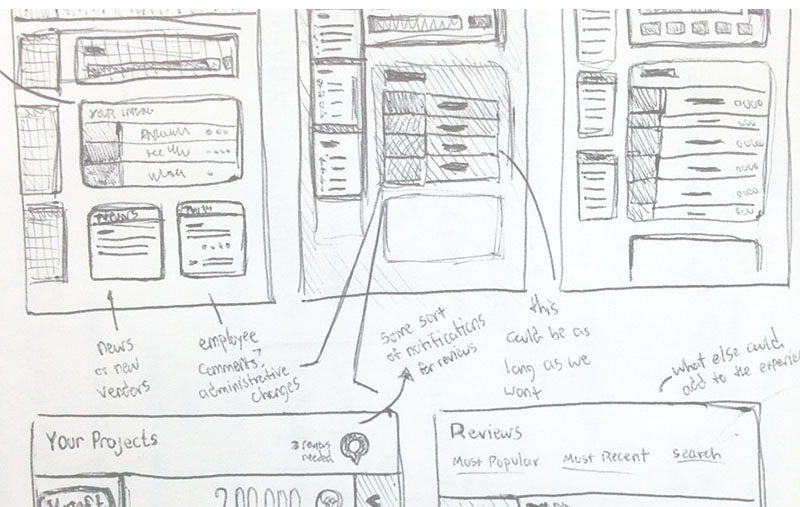 your
News
news
or new
vendors
employee
comments?
administrative
changes
Some sort
of notifications
for reviews
this
could be as
long as we
want
what else could
add to the experie
Your Projects
3 reviews
needed
Reviews
Most Popular
Most Recent
Search
200,000